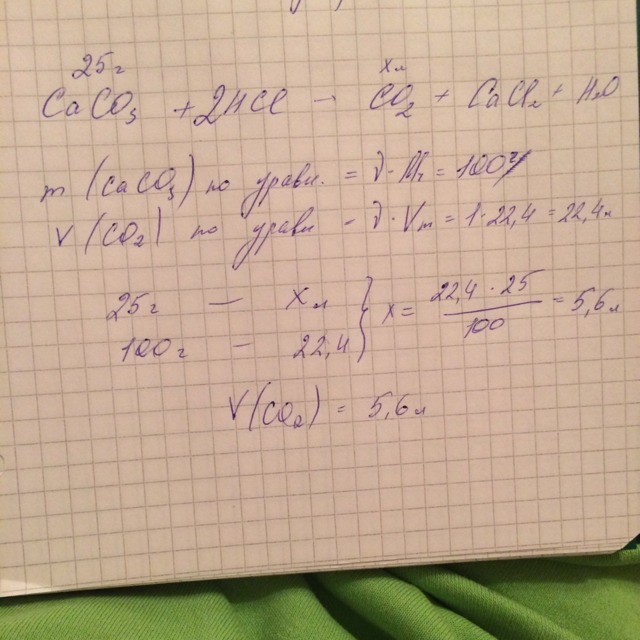 25г хл
CaCO3 + 2HCl — CO2 + CaCl2 + H2O
m (CaCO3) по уравн. = ν · Mr = 100г
V (CO2) по уравн = ν · Vm = 1 · 22,4 = 22,4л
25г — хл } x = 22,4 · 25 / 100 = 5,6л
100г — 22,4
V(CO2) = 5,6л